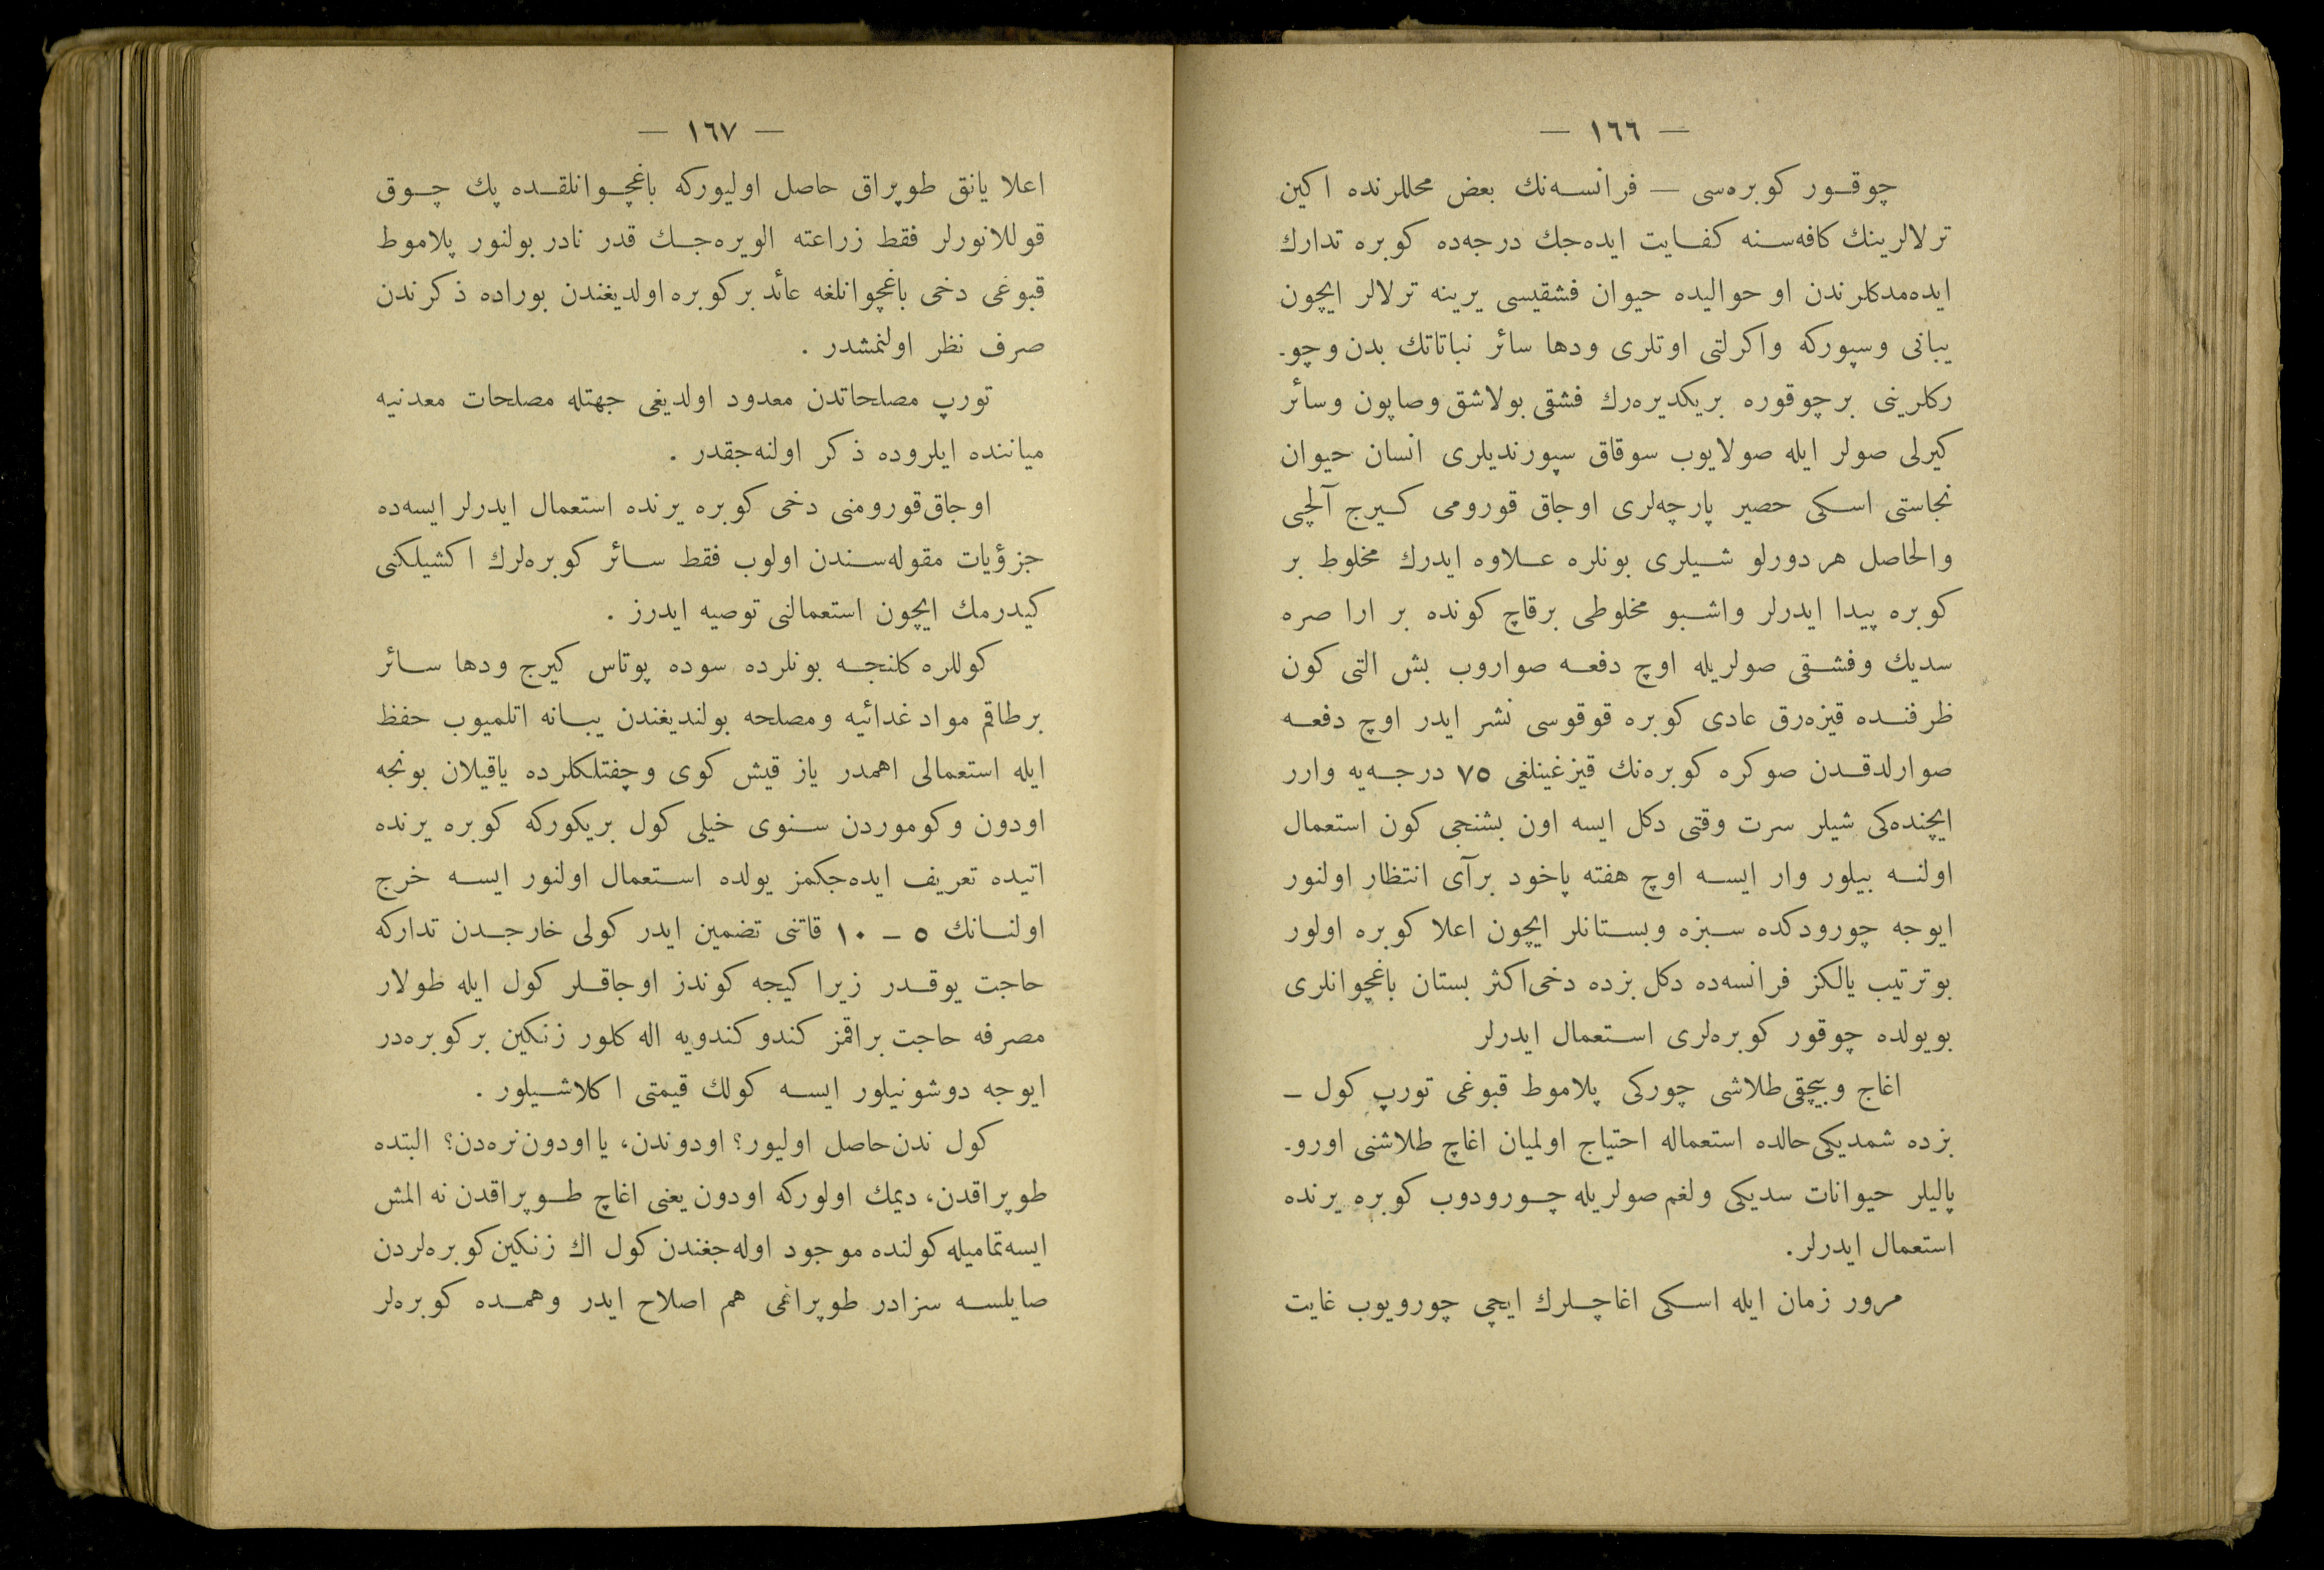 — ١٦٦ —
چوقور كوبره‌سی — فرانسه‌نك بعض محللرنده اكین
ترلالرینك كافه‌سنه كفایت ایده‌جك درجه‌ده كوبره تدارك
ایده‌مدكلرندن او حوالیده حیوان فشقیسی یرینه ترلالر ایچون
یبانی وسپوركه واكرلتی اوتلری ودها سائر نباتاتك بدن وچو-
ركلرینی برچوقوره بریكدیره‌رك فشقی بولاشق وصاپون وسائر
كیرلی صولر ایله صولایوب سوقاق سپورندیلری انسان حیوان
نجاستی اسكی حصیر پارچه‌لری اوجاق قورومی كیرج آلچی
والحاصل هر دورلو شیلری بونلره علاوه ایدرك مخلوط بر
كوبره پیدا ایدرلر واشبو مخلوطی برقاچ كونده بر ارا صره
سدیك وفشقی صولریله اوچ دفعه صواروب بش التی كون
ظرفنده قیزه‌رق عادی كوبره قوقوسی نشر ایدر اوچ دفعه
صوارلدقدن صوكره كوبره‌نك قیزغینلغی ٧٥ درجه‌یه وارر
ایچنده‌كی شیلر سرت وقتی دكل ایسه اون بشنجی كون استعمال
اولنه بیلور وار ایسه اوچ هفته یاخود برآی انتظار اولنور
ایوجه چورودكده سبزه وبستانلر ایچون اعلا كوبره اولور
بوترتیب یالكز فرانسه‌ده دكل بزده دخی اكثر بستان باغچوانلری
بویولده چوقور كوبره‌لری استعمال ایدرلر
اغاج وبیچقی طلاشی چوركی پلاموط قبوغی تورپ كول —
بزده شمدیكی حالده استعماله احتیاج اولمیان اغاچ طلاشنی اورو-
پالیلر حیوانات سدیكی ولغم صولریله چورودوب كوبره یرنده
استعمال ایدرلر.
مرور زمان ایله اسكی اغاچلرك ایچی چورویوب غایت
— ١٦٧ —
اعلا یانق طوپراق حاصل اولیوركه باغچوانلقده پك چوق
قوللانورلر فقط زراعته الویره‌جك قدر نادر بولنور پلاموط
قبوغی دخی باغچوانلغه عائد بركوبره اولدیغندن بوراده ذكرندن
صرف نظر اولنمشدر .
تورپ مصلحاتدن معدود اولدیغی جهتله مصلحات معدنیه
میاننده ایلروده ذكر اولنه‌جقدر .
اوجاق قورومنی دخی كوبره یرنده استعمال ایدرلر ایسه‌ده
جزؤیات مقوله‌سندن اولوب فقط سائر كوبره‌لرك اكشیلكنی
كیدرمك ایچون استعمالنی توصیه ایدرز .
كوللره كلنجه بونلرده سوده پوتاس كیرج ودها سائر
برطاقم مواد غدائیه ومصلحه بولندیغندن یبانه اتلمیوب حفظ
ایله استعمالی اهمدر یاز قیش كوی وچفتلكلرده یاقیلان بونجه
اودون وكوموردن سنوی خیلی كول بریكوركه كوبره یرنده
اتیده تعریف ایده‌جكمز یولده استعمال اولنور ایسه خرج
اولنانك ٥ — ١٠ قاتنی تضمین ایدر كولی خارجدن تداركه
حاجت یوقدر زیرا كیجه كوندز اوجاقلر كول ایله طولار
مصرفه حاجت براقمز كندو كندویه اله كلور زنكین بركوبره‌در
ایوجه دوشونیلور ایسه كولك قیمتی اكلاشیلور .
كول ندن حاصل اولیور؟ اودوندن، یا اودون نره‌دن؟ البتده
طوپراقدن، دیمك اولوركه اودون یعنی اغاچ طوپراقدن نه المش
ایسه تمامیله كولنده موجود اوله‌جغندن كول اك زنكین كوبره‌لردن
صایلسه سزادر طوپراغی هم اصلاح ایدر وهمده كوبره‌لر